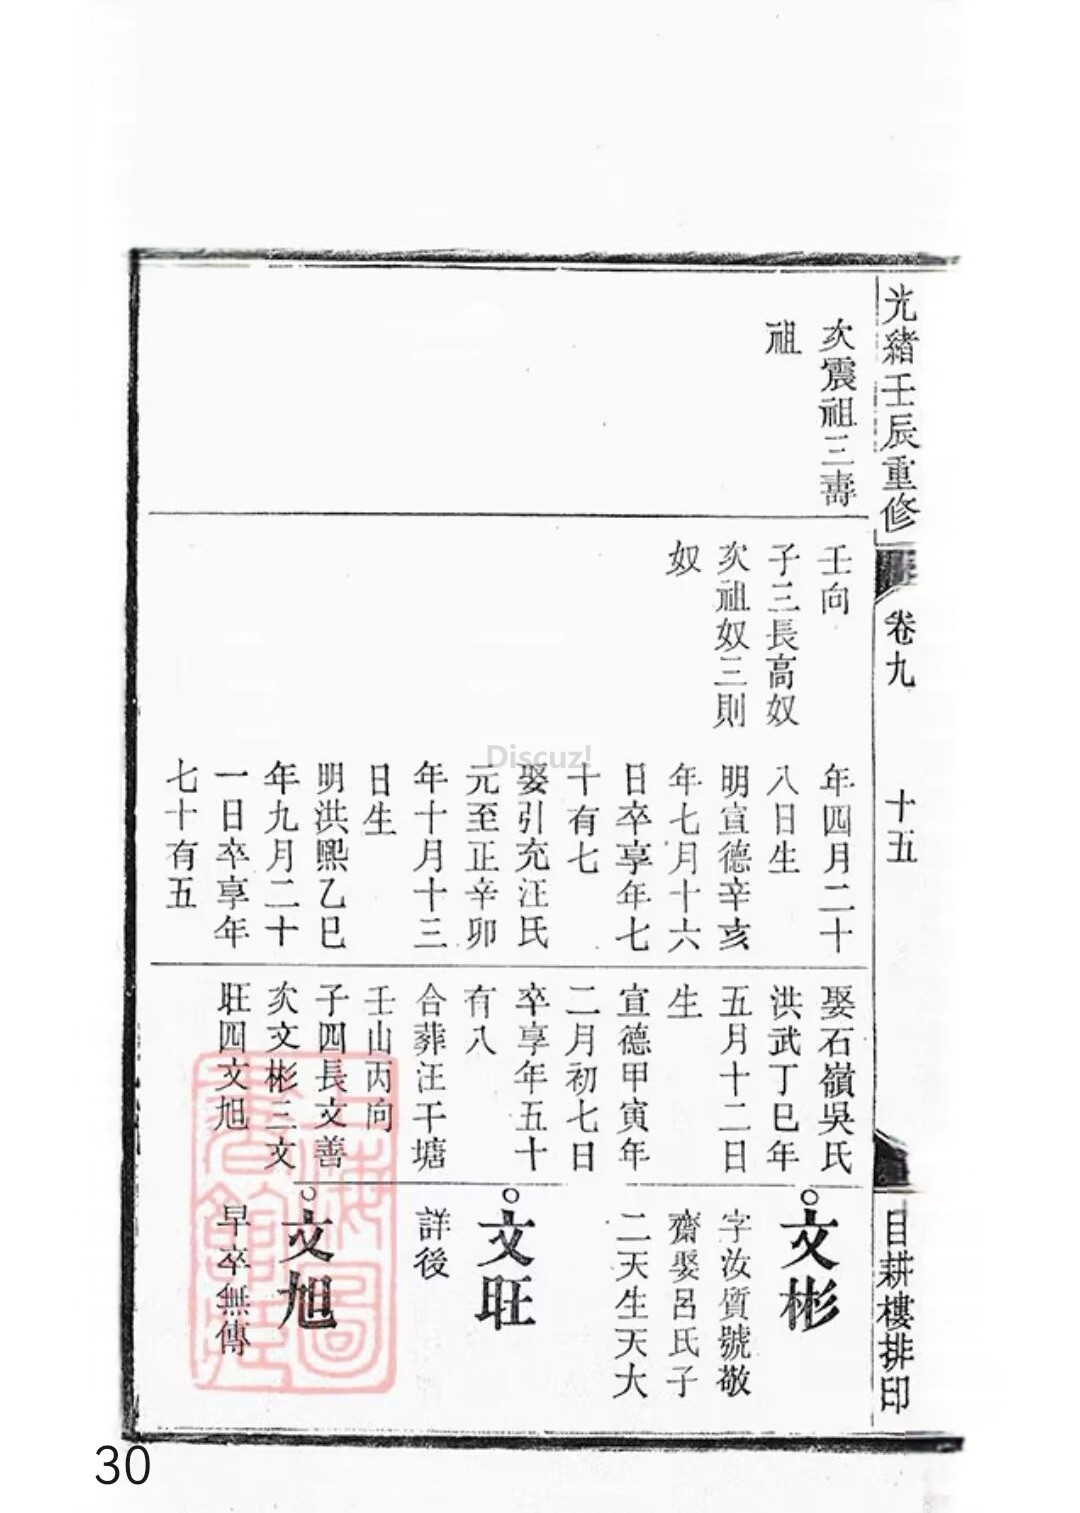 光緒壬辰重修
卷九
十五
目耕樓排印
次震祖三壽
祖
壬向
子三長高奴
次祖奴三則
奴
年四月二十
八日生
明宣德辛亥
年七月十六
日卒享年七
十有七
娶引充汪氏
元至正辛卯
年十月十三
日生
明洪熙乙巳
年九月二十
一日卒享年
七十有五
娶石嶺吳氏
洪武丁巳年
五月十二日
生
宣德甲寅年
二月初七日
卒享年五十
有八
合葬汪干塘
壬山丙向
子四長文善
次文彬三文
旺四文旭
文彬
字汝質號敬
齋娶呂氏子
二天生天大
文旺
詳後
文旭
早卒無傳
上海圖書館藏
Discuz!
30